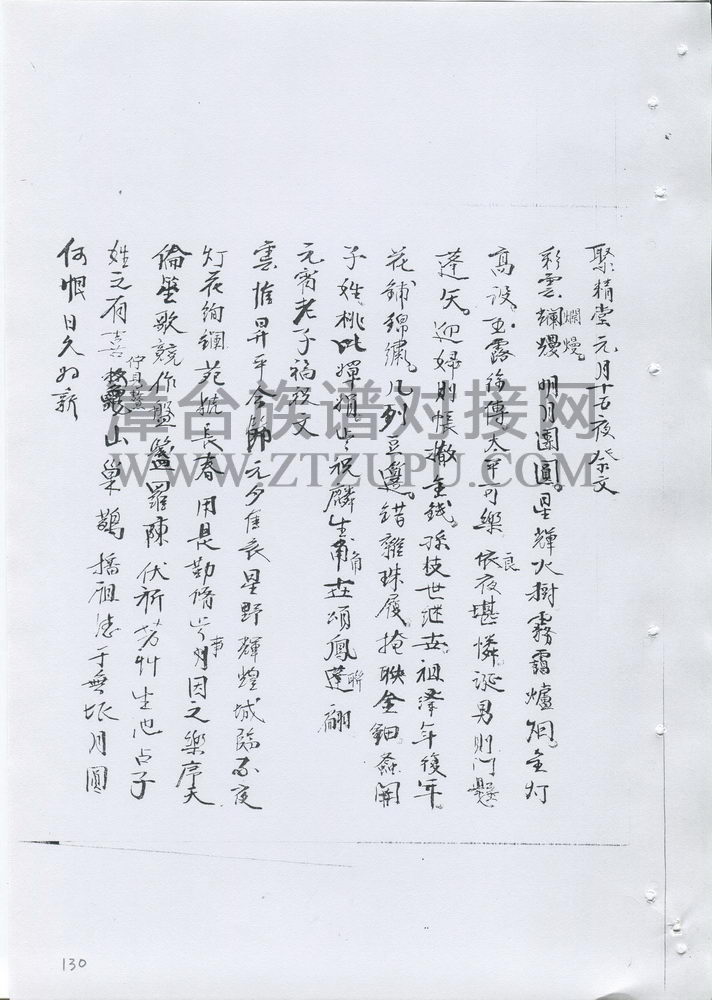 聚精堂元月十五夜祭文
彩雲斕熳爛熳明月團圓星輝火樹霧靄爐烟金灯
高設玉露徐傳太平可樂依良夜堪憐誕男則門懸
蓬矢迎婦則帳撒金錢孫枝世继去祖澤年復年
花鋪錦繡几列豆籩錯雜珠履掩映金鈿蓊開
子姓桃比嬋娟止祝麟生角去頌鳳聯翩
元宵老子福設文
雲惟昇平令節元夕佳辰星野輝煌城臨不夜
灯花絢綢苑號長春用是勤脩歲事因之樂序天
倫笙歌競作盤簋羅陳伏祈芳艸生池占子
姓之有喜佇見鰲山巢鵲播祖德于無垠月圓
何恨日久如新
130
漳台族谱对接网
WWW.ZTZUPU.COM